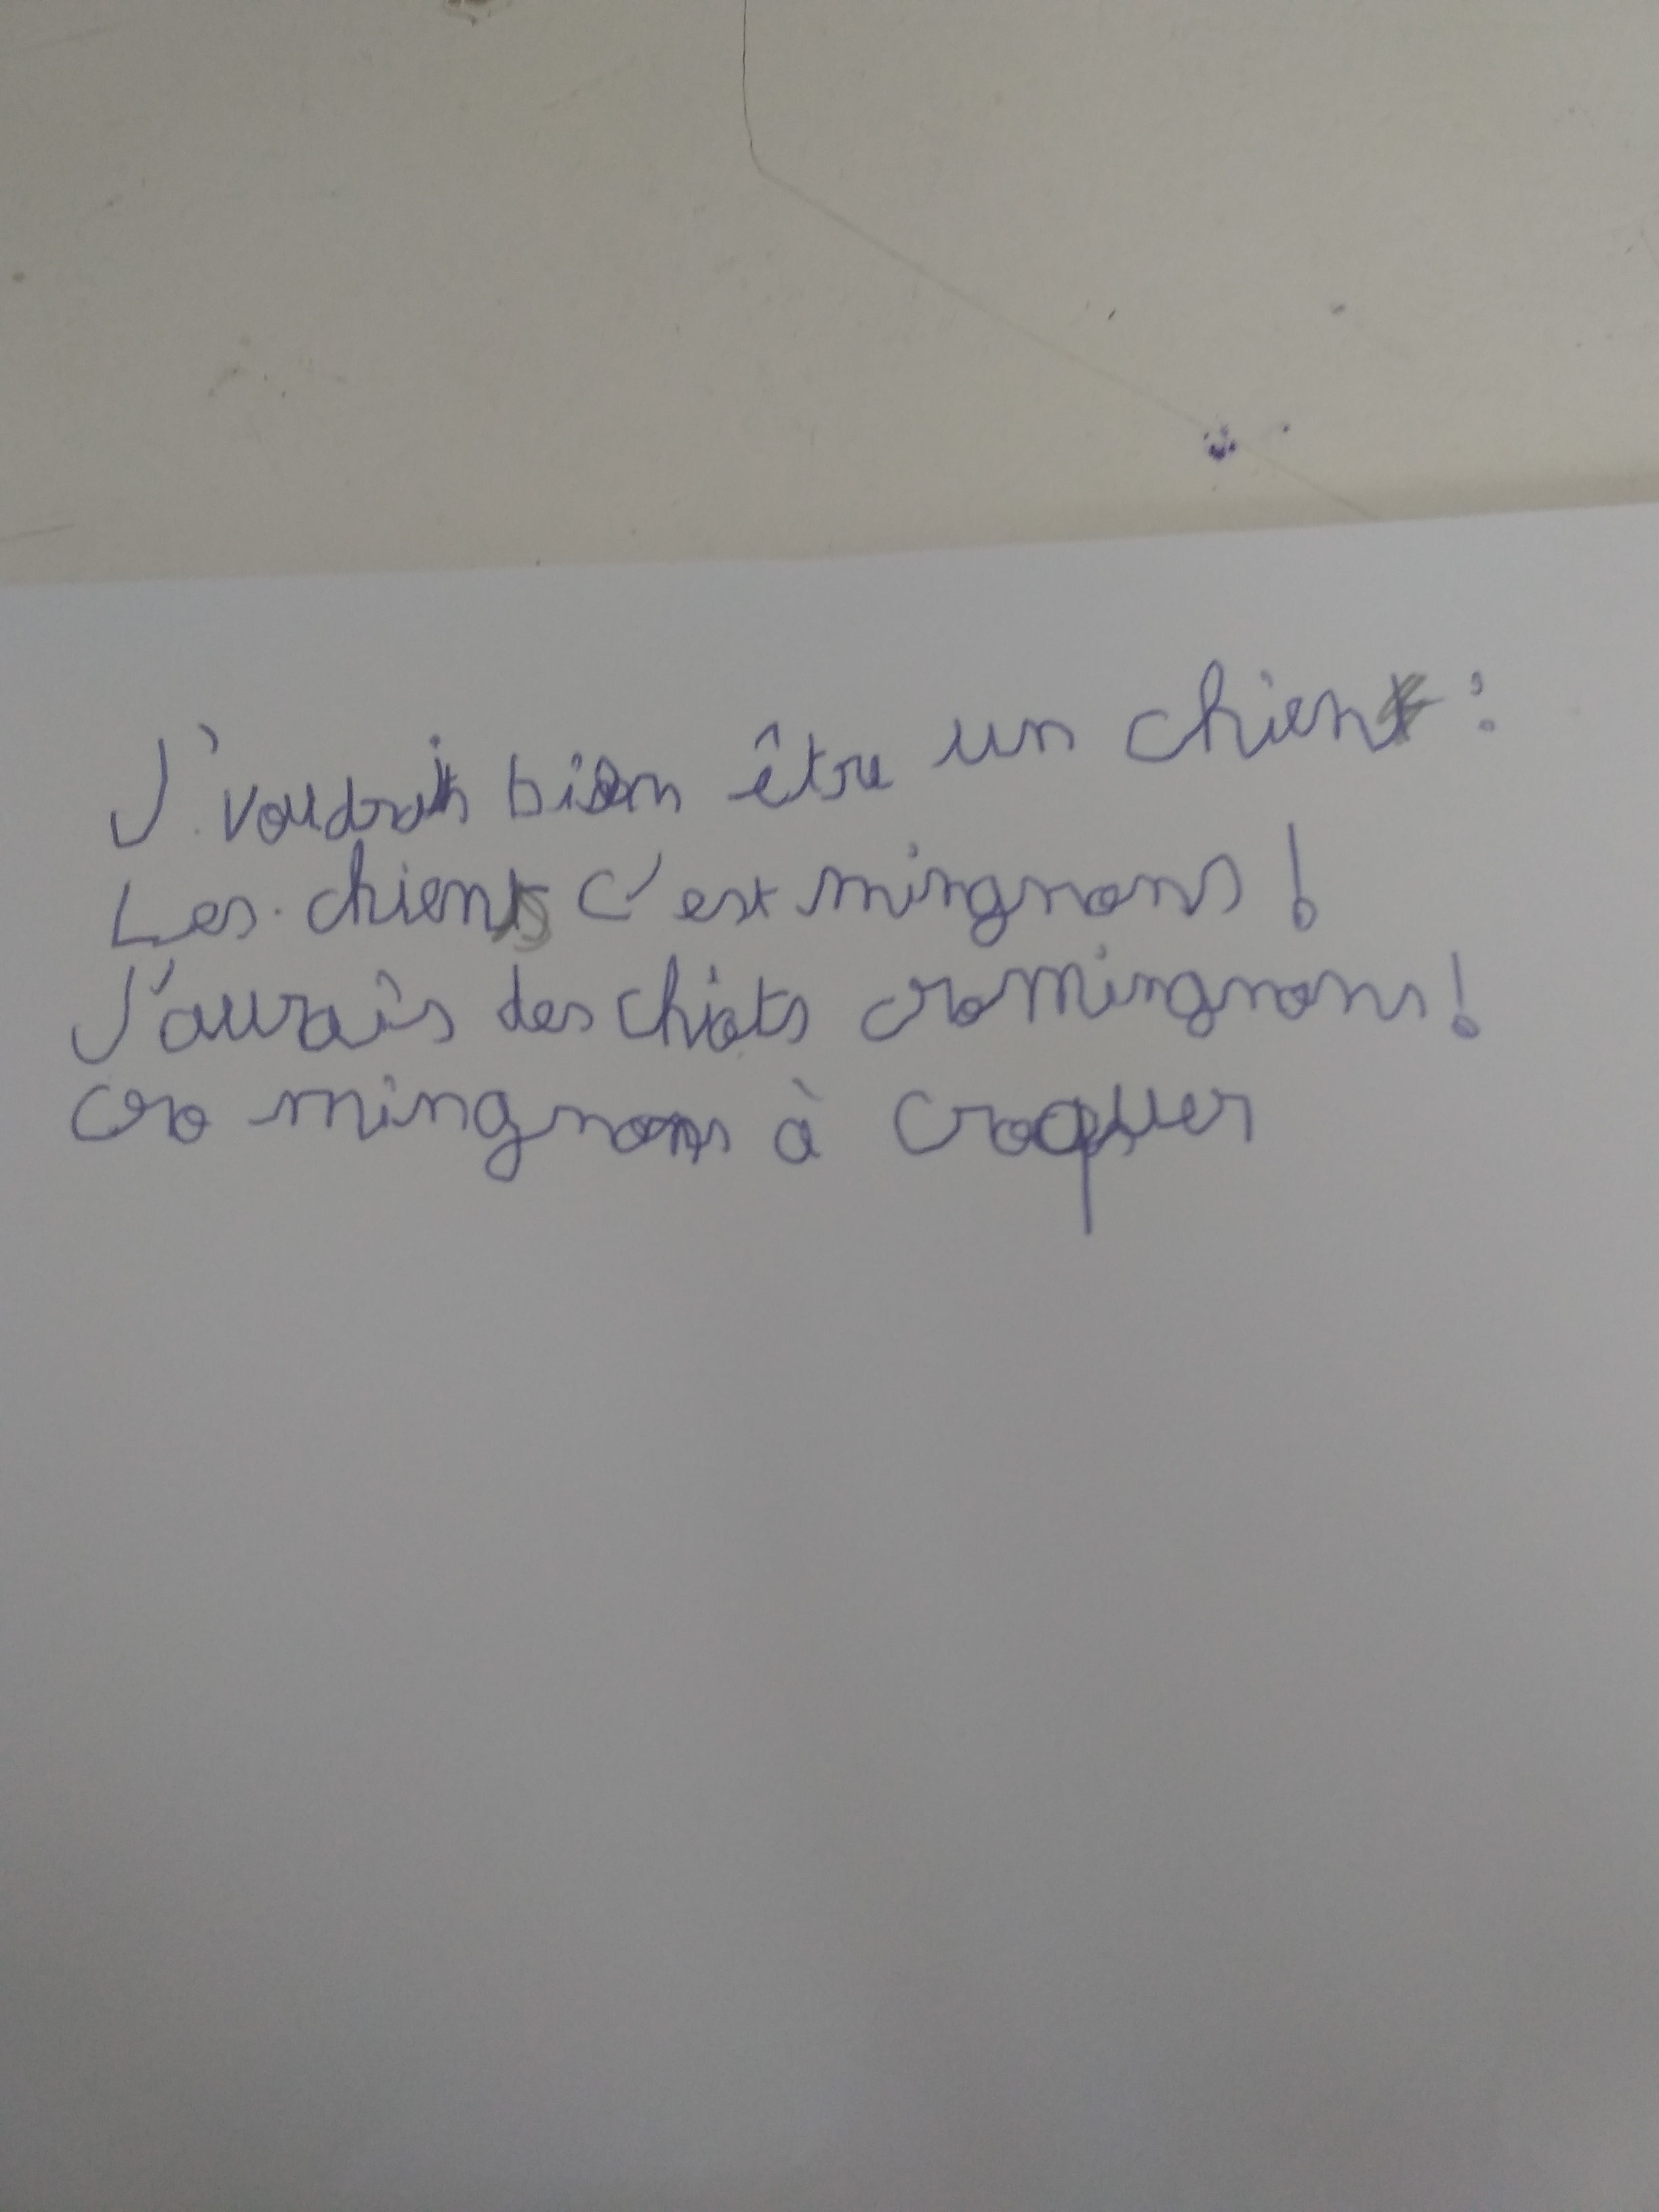 J'voudrais bien être un chien :
Les chiens c'est mingnons !
J'aurais des chiots cromingnons !
cro mingnons à croquer